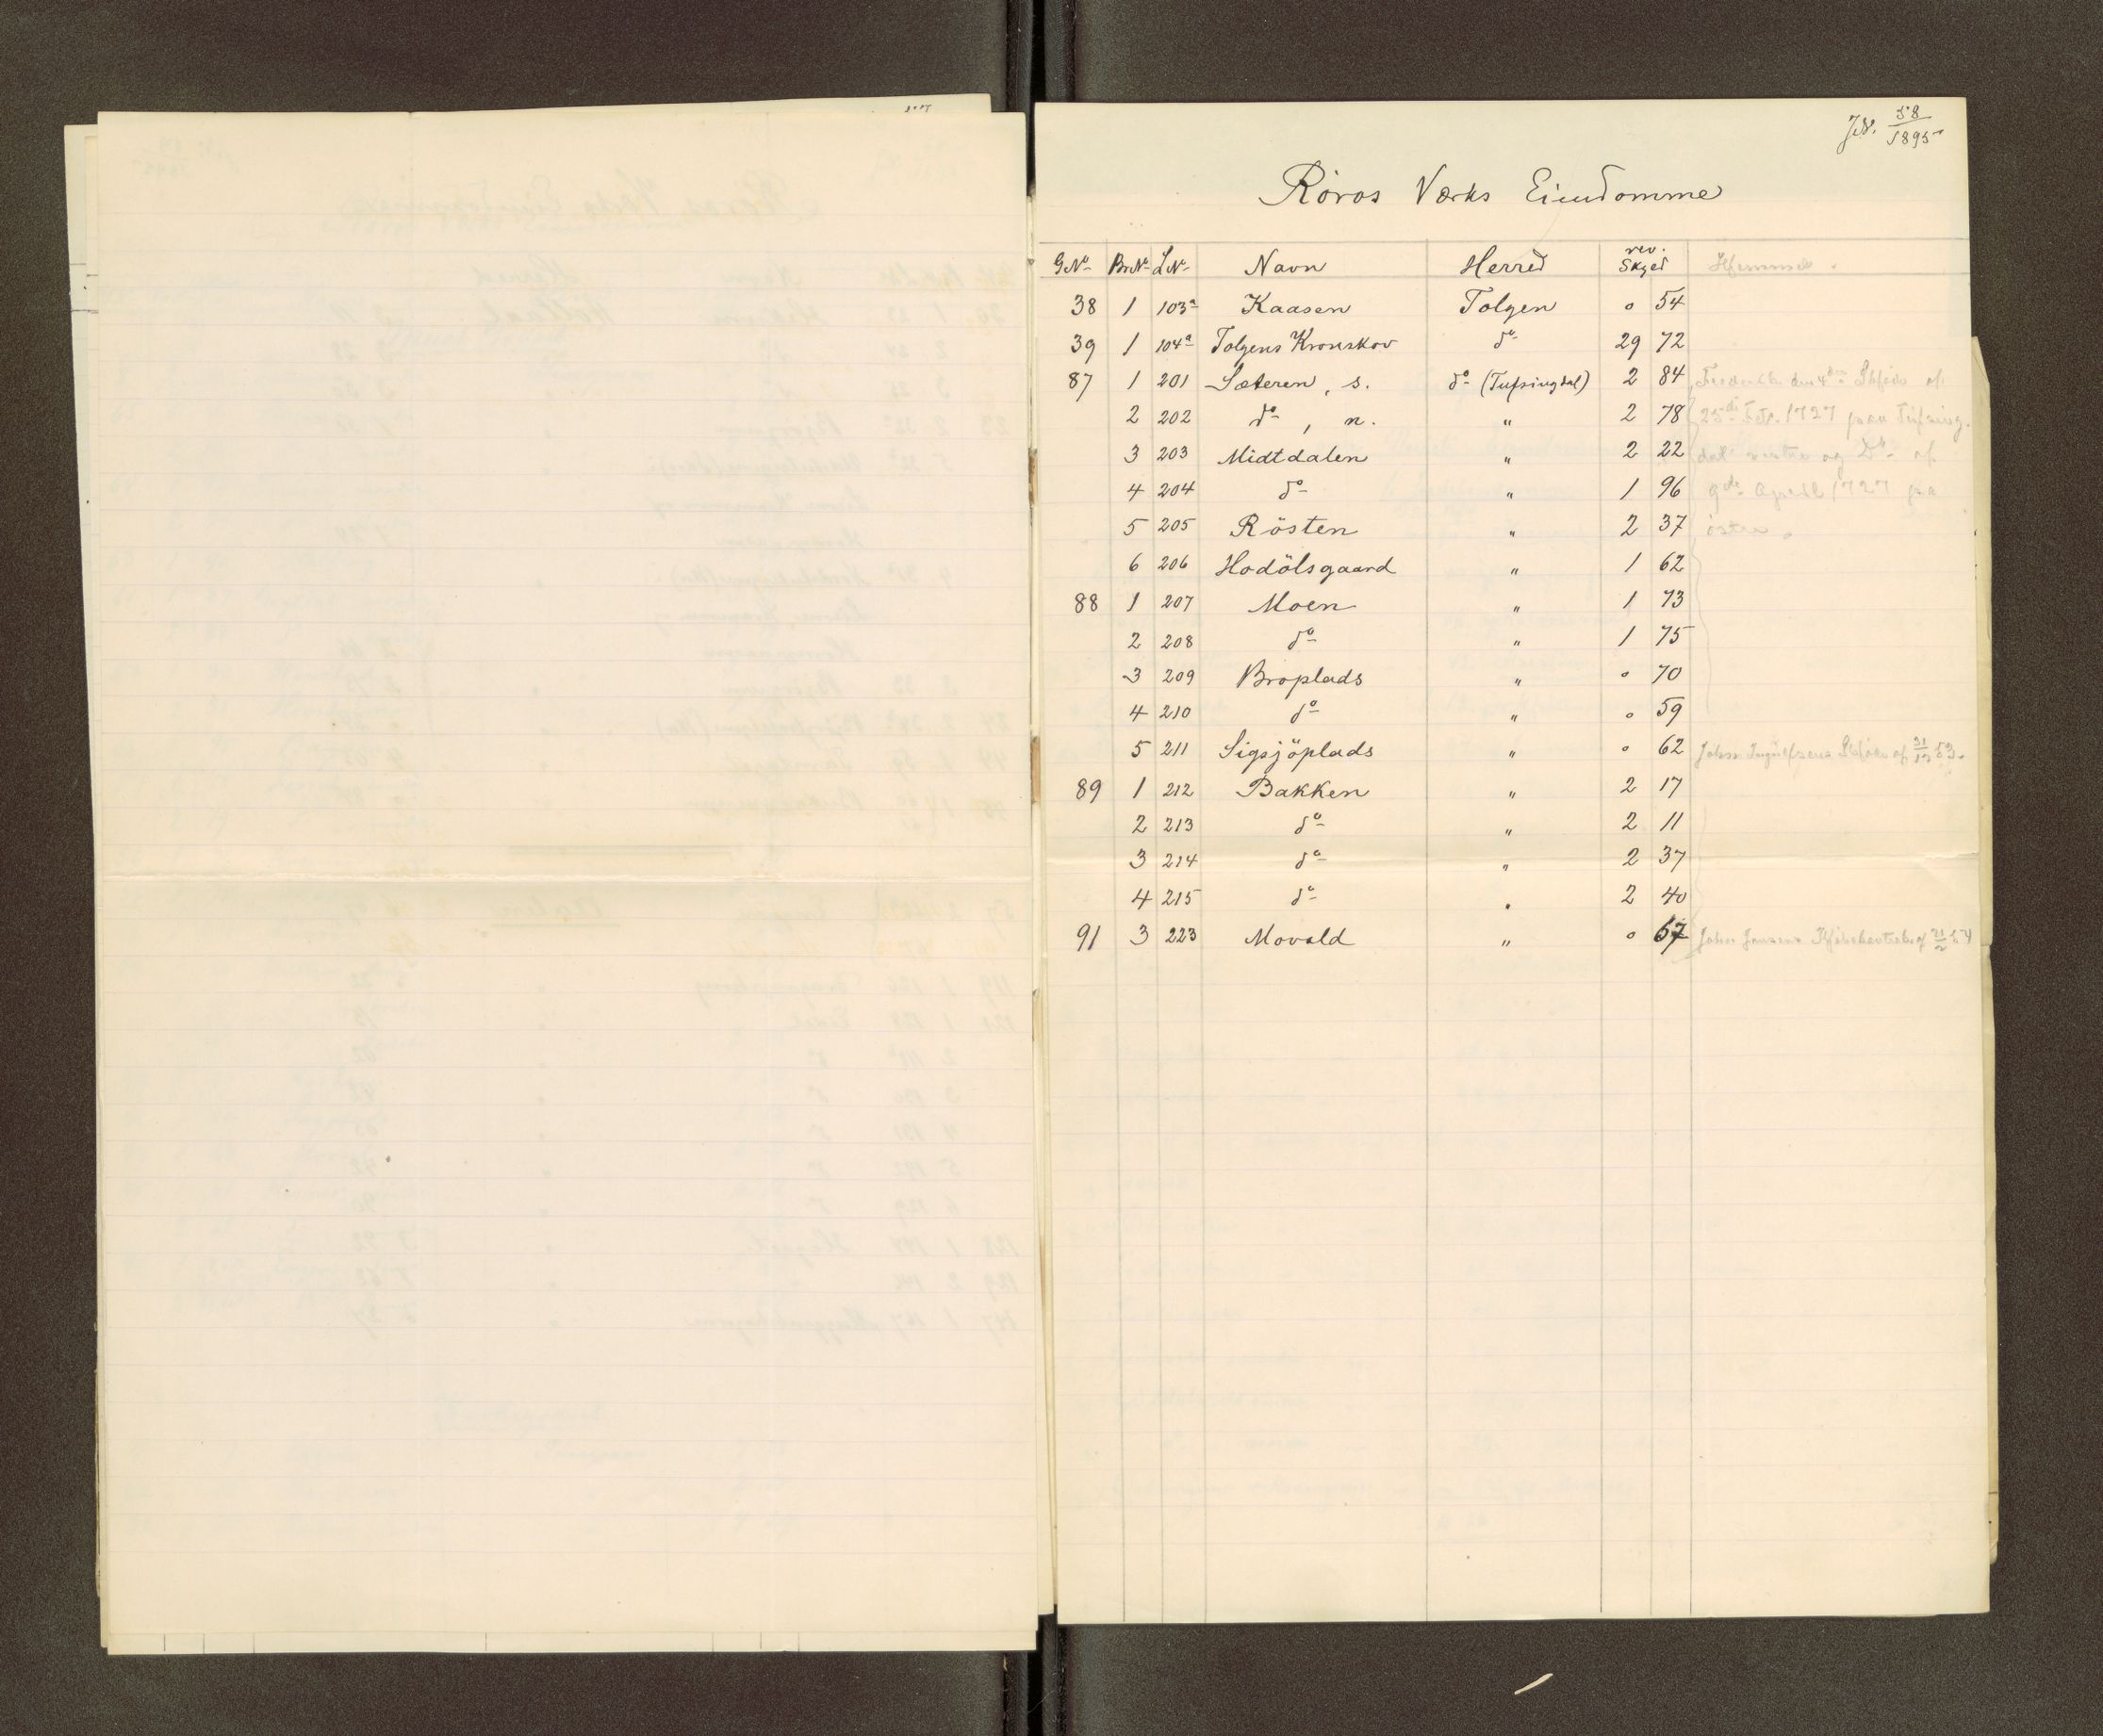 JN. 58/1895
Röros Værks Eiendomme
GNo BrNo LNo Navn Herred rev. Skyld Hjemmel
38 1 103a Kaasen Tolgen 0 54
39 1 104a Tolgens Kronskov do 29 72
87 1 201 Sæteren, s. do (Tufsingdal) 2 84 Frederik den 4des Skjöde af
2 202 do, n. " 2 78 25de Febr. 1727 paa Tufsing-
3 203 Midtdalen " 2 22 dal vestre og Do af
4 204 do " 1 96 9de April 1727 paa
5 205 Rösten " 2 37 östre.
6 206 Hodölsgaard " 1 62
88 1 207 Moen " 1 73
2 208 do " 1 75
3 209 Broplads " 0 70
4 210 do " 0 59
5 211 Sigsjöplads " 0 62 John Ingulfsens Skjöde af 31/12 53.
89 1 212 Bakken " 2 17
2 213 do " 2 11
3 214 do " 2 37
4 215 do " 2 40
91 3 223 Movold " 0 67 John Jensens af 21/2 54